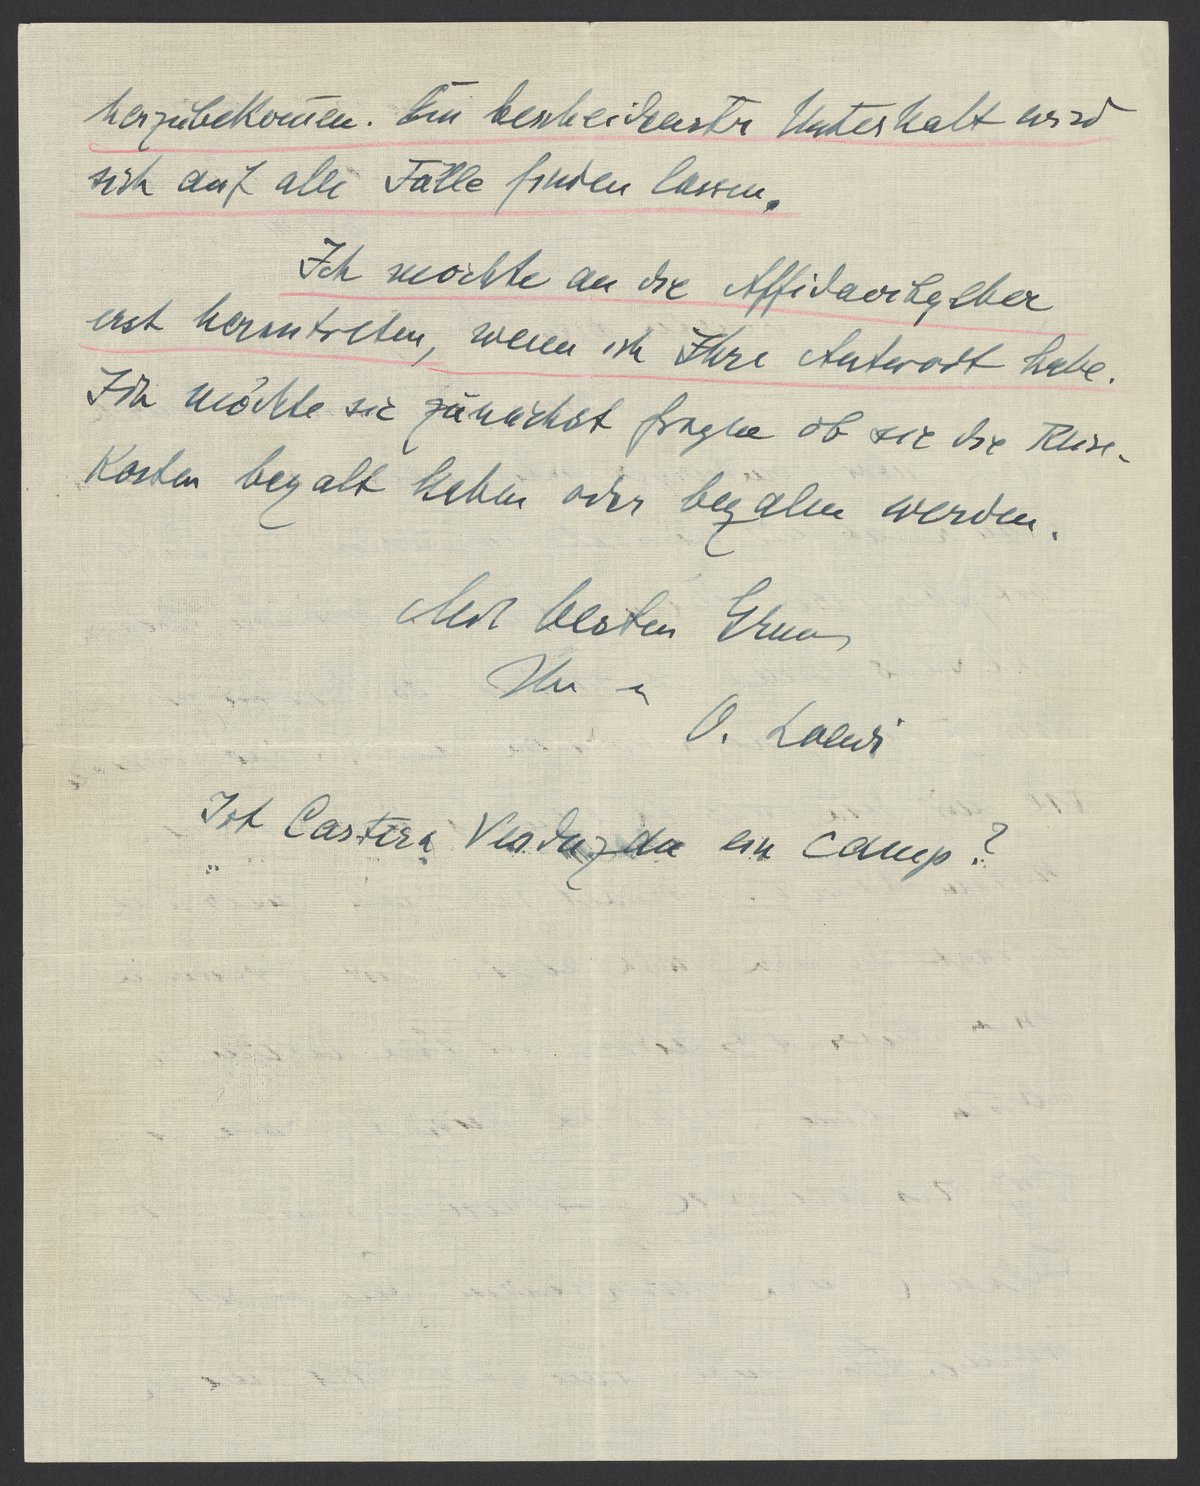 herzubekom̄en. Ein bescheidenster Unterhalt wird
sich auf alle Fälle finden lassen.
Ich möchte an die Affidavitgeber
erst herantreten, wenn ich Ihre Antwort habe.
Ich möchte sie zunächst fragen ob sie die Reise-
kosten bezalt haben oder bezalen werden.
Mit besten Gruss
Ihr
O. Loewi
Ist Castera Verduzan ein camp?